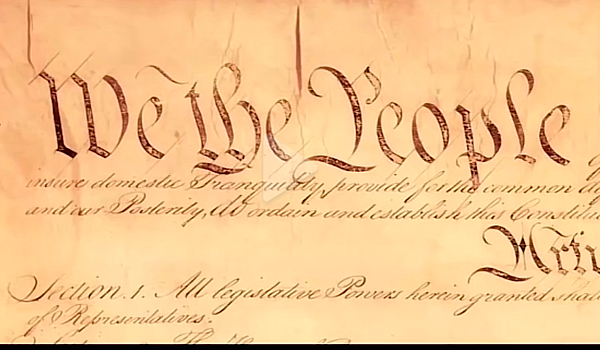 We the People
insure domestic Tranquility, provide for the common
and our Posterity, do ordain and establish this Constitu
Arti
Section. 1. All legislative Powers herein granted shal
of Representatives.